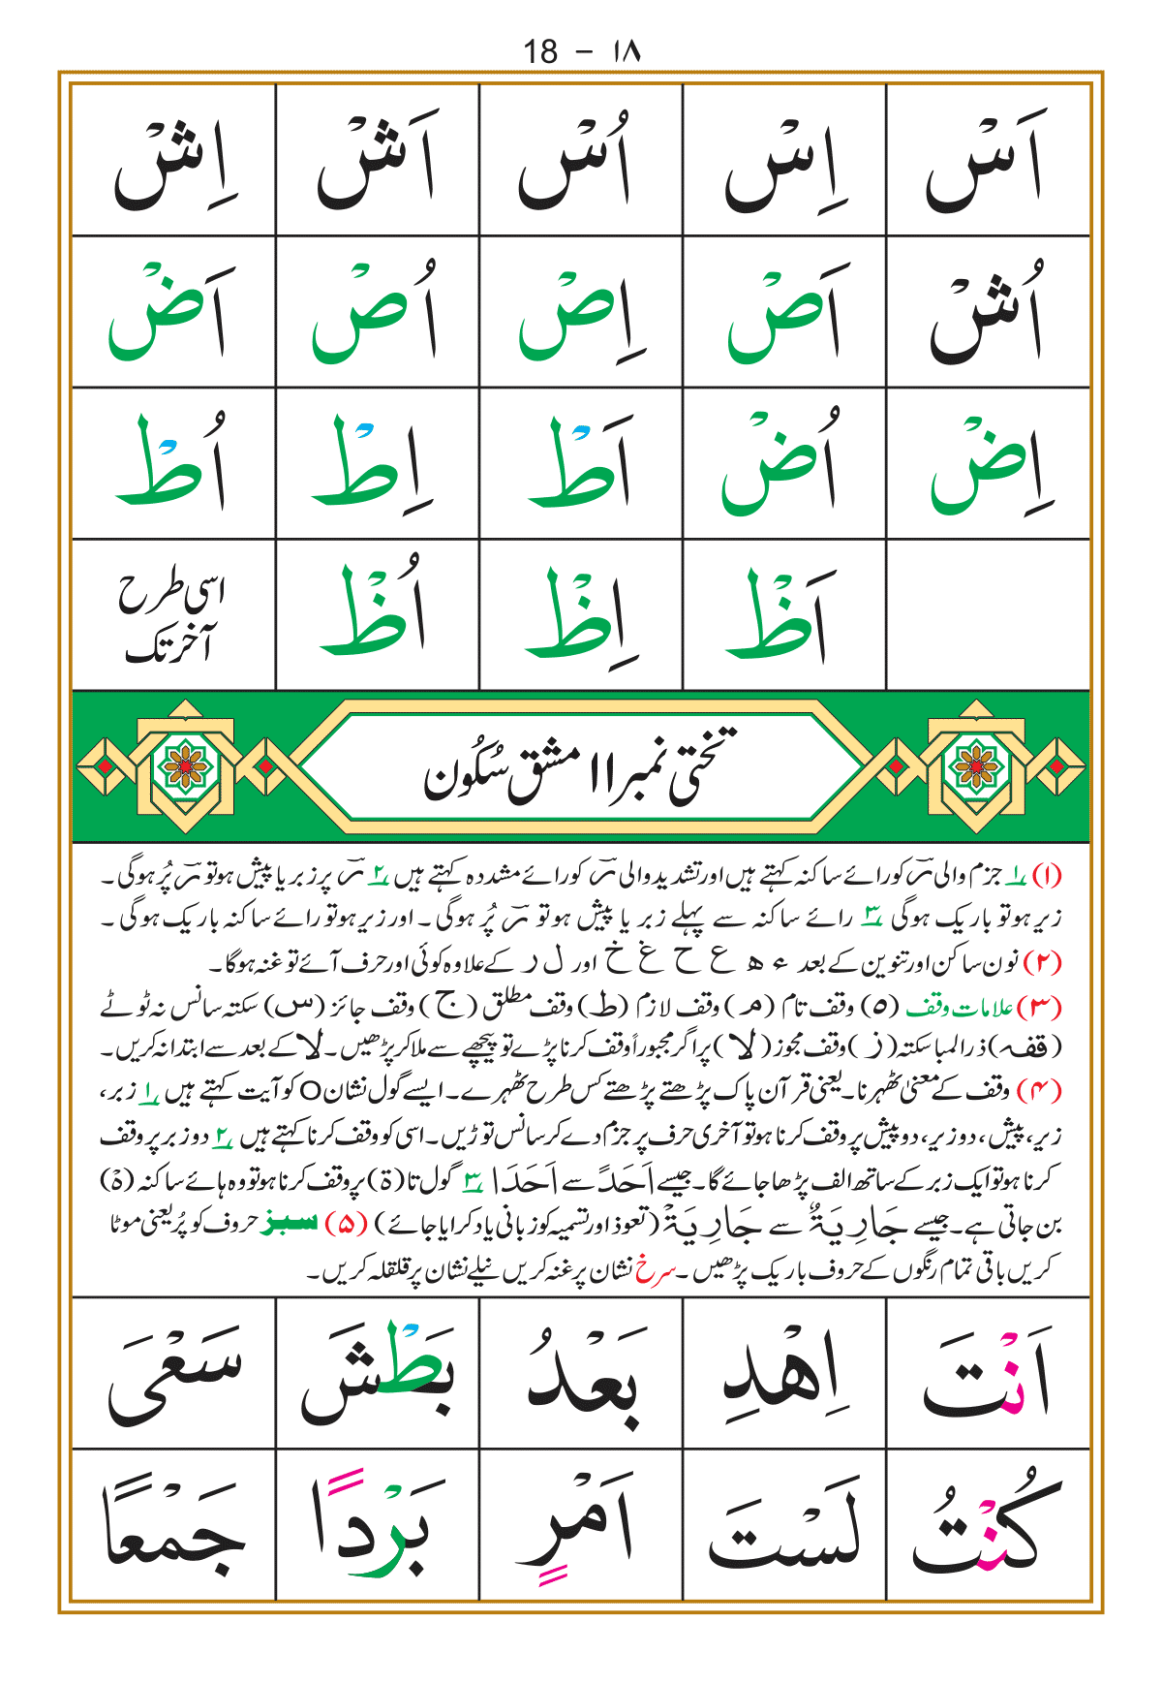 18 - ۱۸
اَسْ اِسْ اُسْ اَشْ اِشْ
اُشْ اَصْ اِصْ اُصْ اَضْ
اِضْ اُضْ اَطْ اِطْ اُطْ
اَظْ اِظْ اُظْ اسی طرح آخر تک
تختی نمبر ۱۱ مشق سُکُون
(۱) ۱؎ جزم والی رْ کو رائے ساکنہ کہتے ہیں اور تشدید والی رّ کو رائے مشددہ کہتے ہیں ۲؎ رّ پر زبر یا پیش ہو تو رّ پُر ہوگی۔
زیر ہو تو باریک ہوگی ۳؎ رائے ساکنہ سے پہلے زبر یا پیش ہو تو رْ پُر ہوگی۔ اور زیر ہو تو رائے ساکنہ باریک ہوگی۔
(۲) نون ساکن اور تنوین کے بعد ء ھ ع ح غ خ اور ل ر کے علاوہ کوئی اور حرف آئے تو غنہ ہوگا۔
(۳) علامات وقف (٥) وقف تام (مـ) وقف لازم (ط) وقف مطلق (ج) وقف جائز (س) سکتہ سانس نہ ٹوٹے
(قفہ) ذرا لمبا سکتہ (ز) وقف مجوز (لا) پر اگر مجبوراً وقف کرنا پڑے تو پیچھے سے ملا کر پڑھیں۔ لا کے بعد سے ابتدا نہ کریں۔
(۴) وقف کے معنیٰ ٹھہرنا۔ یعنی قرآن پاک پڑھتے پڑھتے کس طرح ٹھہرے۔ ایسے گول نشان O کو آیت کہتے ہیں ۱؎ زبر،
زیر، پیش، دو زیر، دو پیش پر وقف کرنا ہو تو آخری حرف پر جزم دے کر سانس توڑیں۔ اسی کو وقف کرنا کہتے ہیں ۲؎ دو زبر پر وقف
کرنا ہو تو ایک زبر کے ساتھ الف پڑھا جائے گا۔ جیسے اَحَدًا سے اَحَدَا ۳؎ گول تا (ة) پر وقف کرنا ہو تو وہ ہائے ساکنہ (هْ)
بن جاتی ہے۔ جیسے جَارِيَةٌ سے جَارِيَهْ (تعوذ اور تسمیہ کو زبانی یاد کرایا جائے) (۵) سبز حروف کو پُر یعنی موٹا
کریں باقی تمام رنگوں کے حروف باریک پڑھیں۔ سرخ نشان پر غنہ کریں نیلے نشان پر قلقلہ کریں۔
اَنْتَ اِهْدِ بَعْدُ بَطْشَ سَعْیَ
كُنْتُ لَسْتَ اَمْرٍ بَرْدًا جَمْعًا